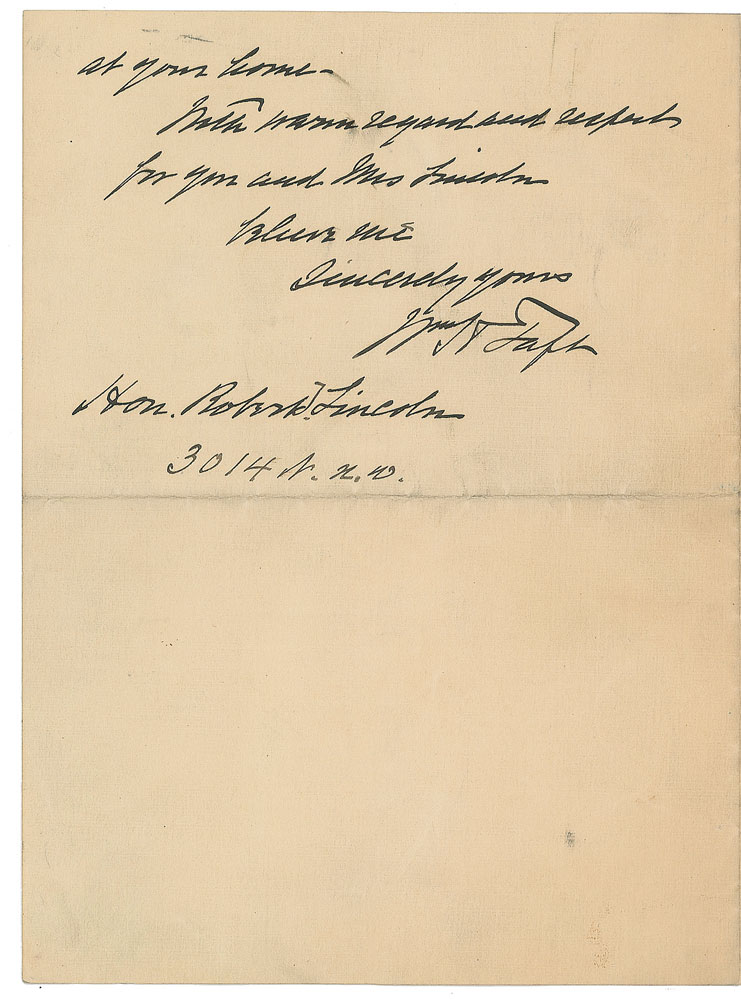 at your home –
With warm regard and respect
for you and Mrs Lincoln
believe me
Sincerely yours
Wm H Taft
Hon. Robert T. Lincoln
3014 N. N. W.